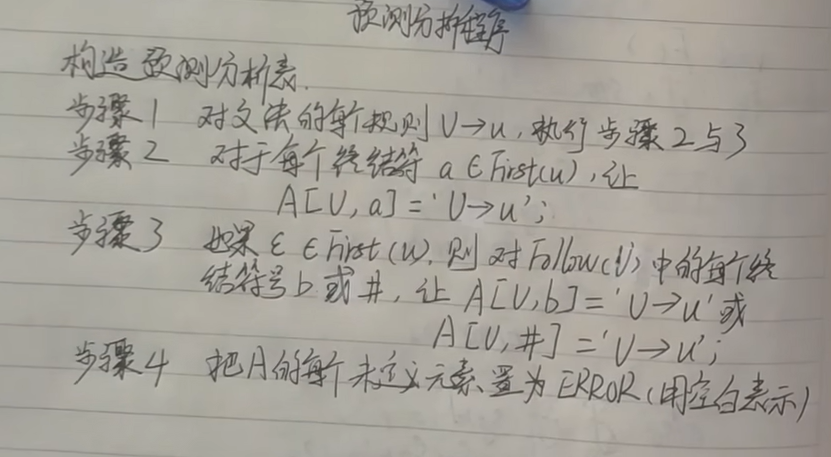 预测分析程序
构造预测分析表.
步骤1 对文法的每个规则U→u,执行步骤2与3
步骤2 对于每个终结符 a∈First(u),让
A[U,a]='U→u';
步骤3 如果ε∈First(u),则对Follow(U)中的每个终
结符号b或#,让A[U,b]='U→u'或
A[U,#]='U→u';
步骤4 把A的每个未定义元素置为ERROR(用空白表示)